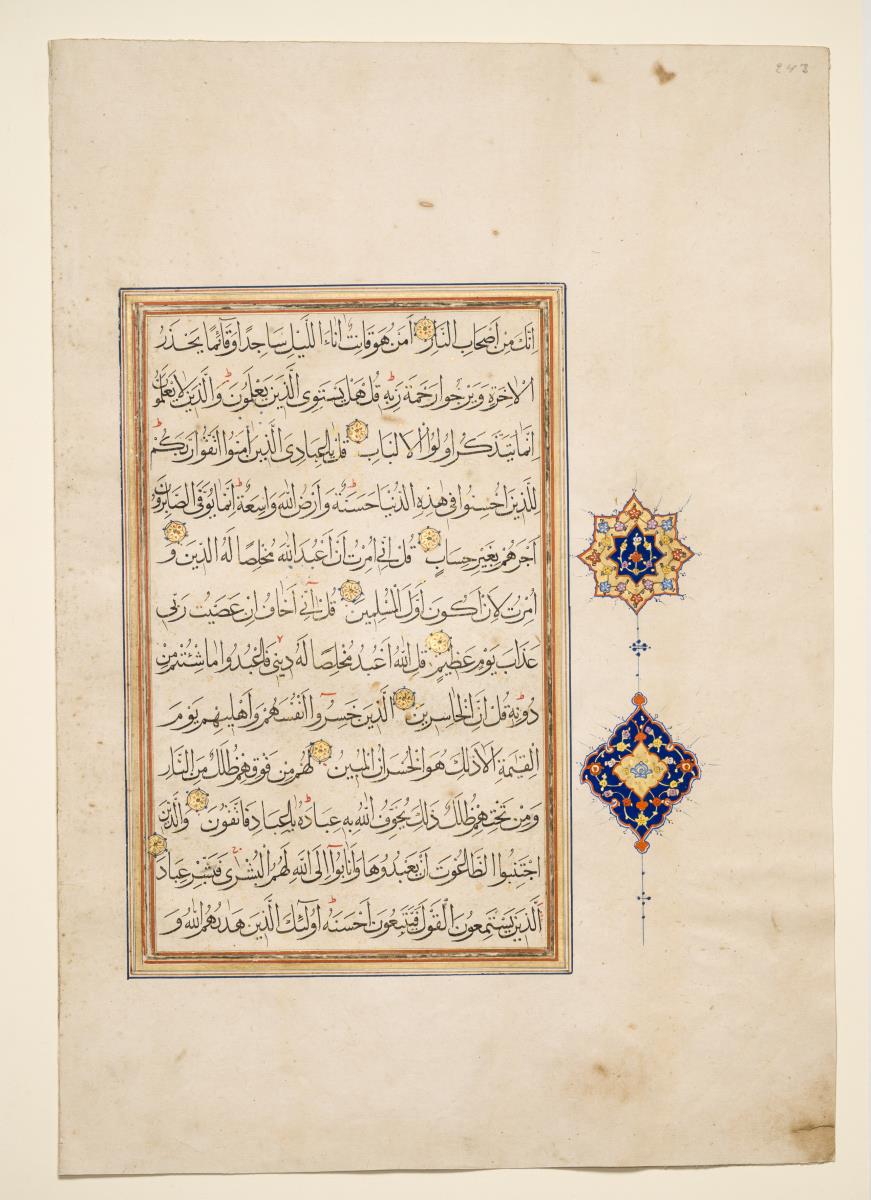 243
اِنَّكَ مِنْ اَصْحَابِ النَّارِ اَمَّنْ هُوَ قَانِتٌ اٰنَاءَ اللَّيْلِ سَاجِدًا وَقَآئِمًا يَحْذَرُ
الْاٰخِرَةَ وَيَرْجُوا رَحْمَةَ رَبِّهٖ قُلْ هَلْ يَسْتَوِى الَّذِينَ يَعْلَمُونَ وَالَّذِينَ لَا يَعْلَمُونَ
اِنَّمَا يَتَذَكَّرُ اُولُوا الْاَلْبَابِ قُلْ يٰعِبَادِىَ الَّذِينَ اٰمَنُوا اتَّقُوا رَبَّكُمْ
لِلَّذِينَ اَحْسَنُوا فِى هٰذِهِ الدُّنْيَا حَسَنَةٌ وَاَرْضُ اللّٰهِ وَاسِعَةٌ اِنَّمَا يُوَفَّى الصَّابِرُونَ
اَجْرَهُمْ بِغَيْرِ حِسَابٍ قُلْ اِنِّى اُمِرْتُ اَنْ اَعْبُدَ اللّٰهَ مُخْلِصًا لَهُ الدِّينَ وَ
اُمِرْتُ لِاَنْ اَكُونَ اَوَّلَ الْمُسْلِمِينَ قُلْ اِنِّىٓ اَخَافُ اِنْ عَصَيْتُ رَبِّى
عَذَابَ يَوْمٍ عَظِيمٍ قُلِ اللّٰهَ اَعْبُدُ مُخْلِصًا لَهُ دِينِى فَاعْبُدُوا مَا شِئْتُمْ مِنْ
دُونِهٖ قُلْ اِنَّ الْخَاسِرِينَ الَّذِينَ خَسِرُوٓا اَنْفُسَهُمْ وَاَهْلِيهِمْ يَوْمَ
الْقِيٰمَةِ اَلَا ذٰلِكَ هُوَ الْخُسْرَانُ الْمُبِينُ لَهُمْ مِنْ فَوْقِهِمْ ظُلَلٌ مِنَ النَّارِ
وَمِنْ تَحْتِهِمْ ظُلَلٌ ذٰلِكَ يُخَوِّفُ اللّٰهُ بِهٖ عِبَادَهُ يٰعِبَادِ فَاتَّقُونِ وَالَّذِينَ
اجْتَنَبُوا الطَّاغُوتَ اَنْ يَعْبُدُوهَا وَاَنَابُوٓا اِلَى اللّٰهِ لَهُمُ الْبُشْرٰى فَبَشِّرْ عِبَادِ
الَّذِينَ يَسْتَمِعُونَ الْقَوْلَ فَيَتَّبِعُونَ اَحْسَنَهُ اُولٰٓئِكَ الَّذِينَ هَدٰيهُمُ اللّٰهُ وَ